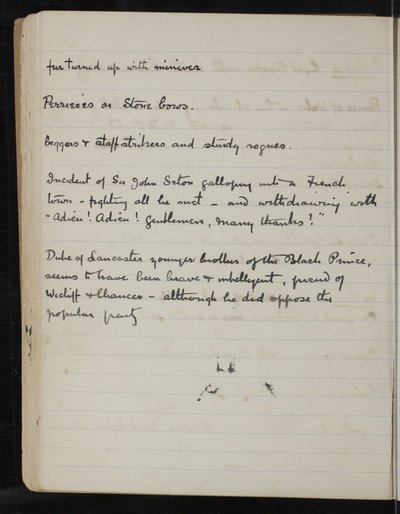 fur turned up with miniver
Perrieries or Stone bows.
beggars & staff strikers and sturdy rogues.
Incident of Sir John Seton galloping into a French
town - fighting all he met - and withdrawing with
"Adieu! Adieu! Gentlemen, many thanks!"
Duke of Lancaster younger brother of the Black Prince,
seems to have been brave & intelligent, friend of
Wicliff & Chaucer - although he did oppose the
popular party